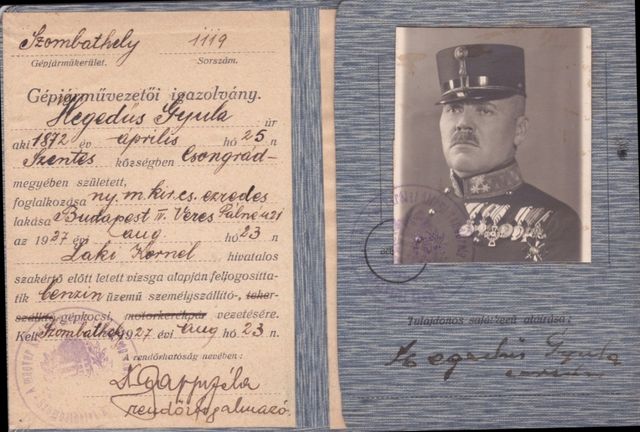 Szombathely 1119
Gépjárműkerület. Sorszám.
Gépjárművezetői igazolvány.
Hegedüs Gyula úr
aki 1872 év április hó 25 n
Szentes községben Csongrád-
megyében született,
foglalkozása ny. m. kir. cs. ezredes
lakása Budapest IV. Veres Pálné u 21
az 1927 évi aug hó 23 n
Laki Kornél hivatalos
szakértő előtt letett vizsga alapján feljogositta-
tik benzin üzemű személyszállitó-, teher-
szállitó-gépkocsi, motorkerékpár vezetésére.
Kelt Szombathely 1927 évi aug hó 23 n.
A rendőrhatóság nevében:
rendőrfogalmazó.
Tulajdonos sajátkezű aláirása:
Hegedüs Gyula